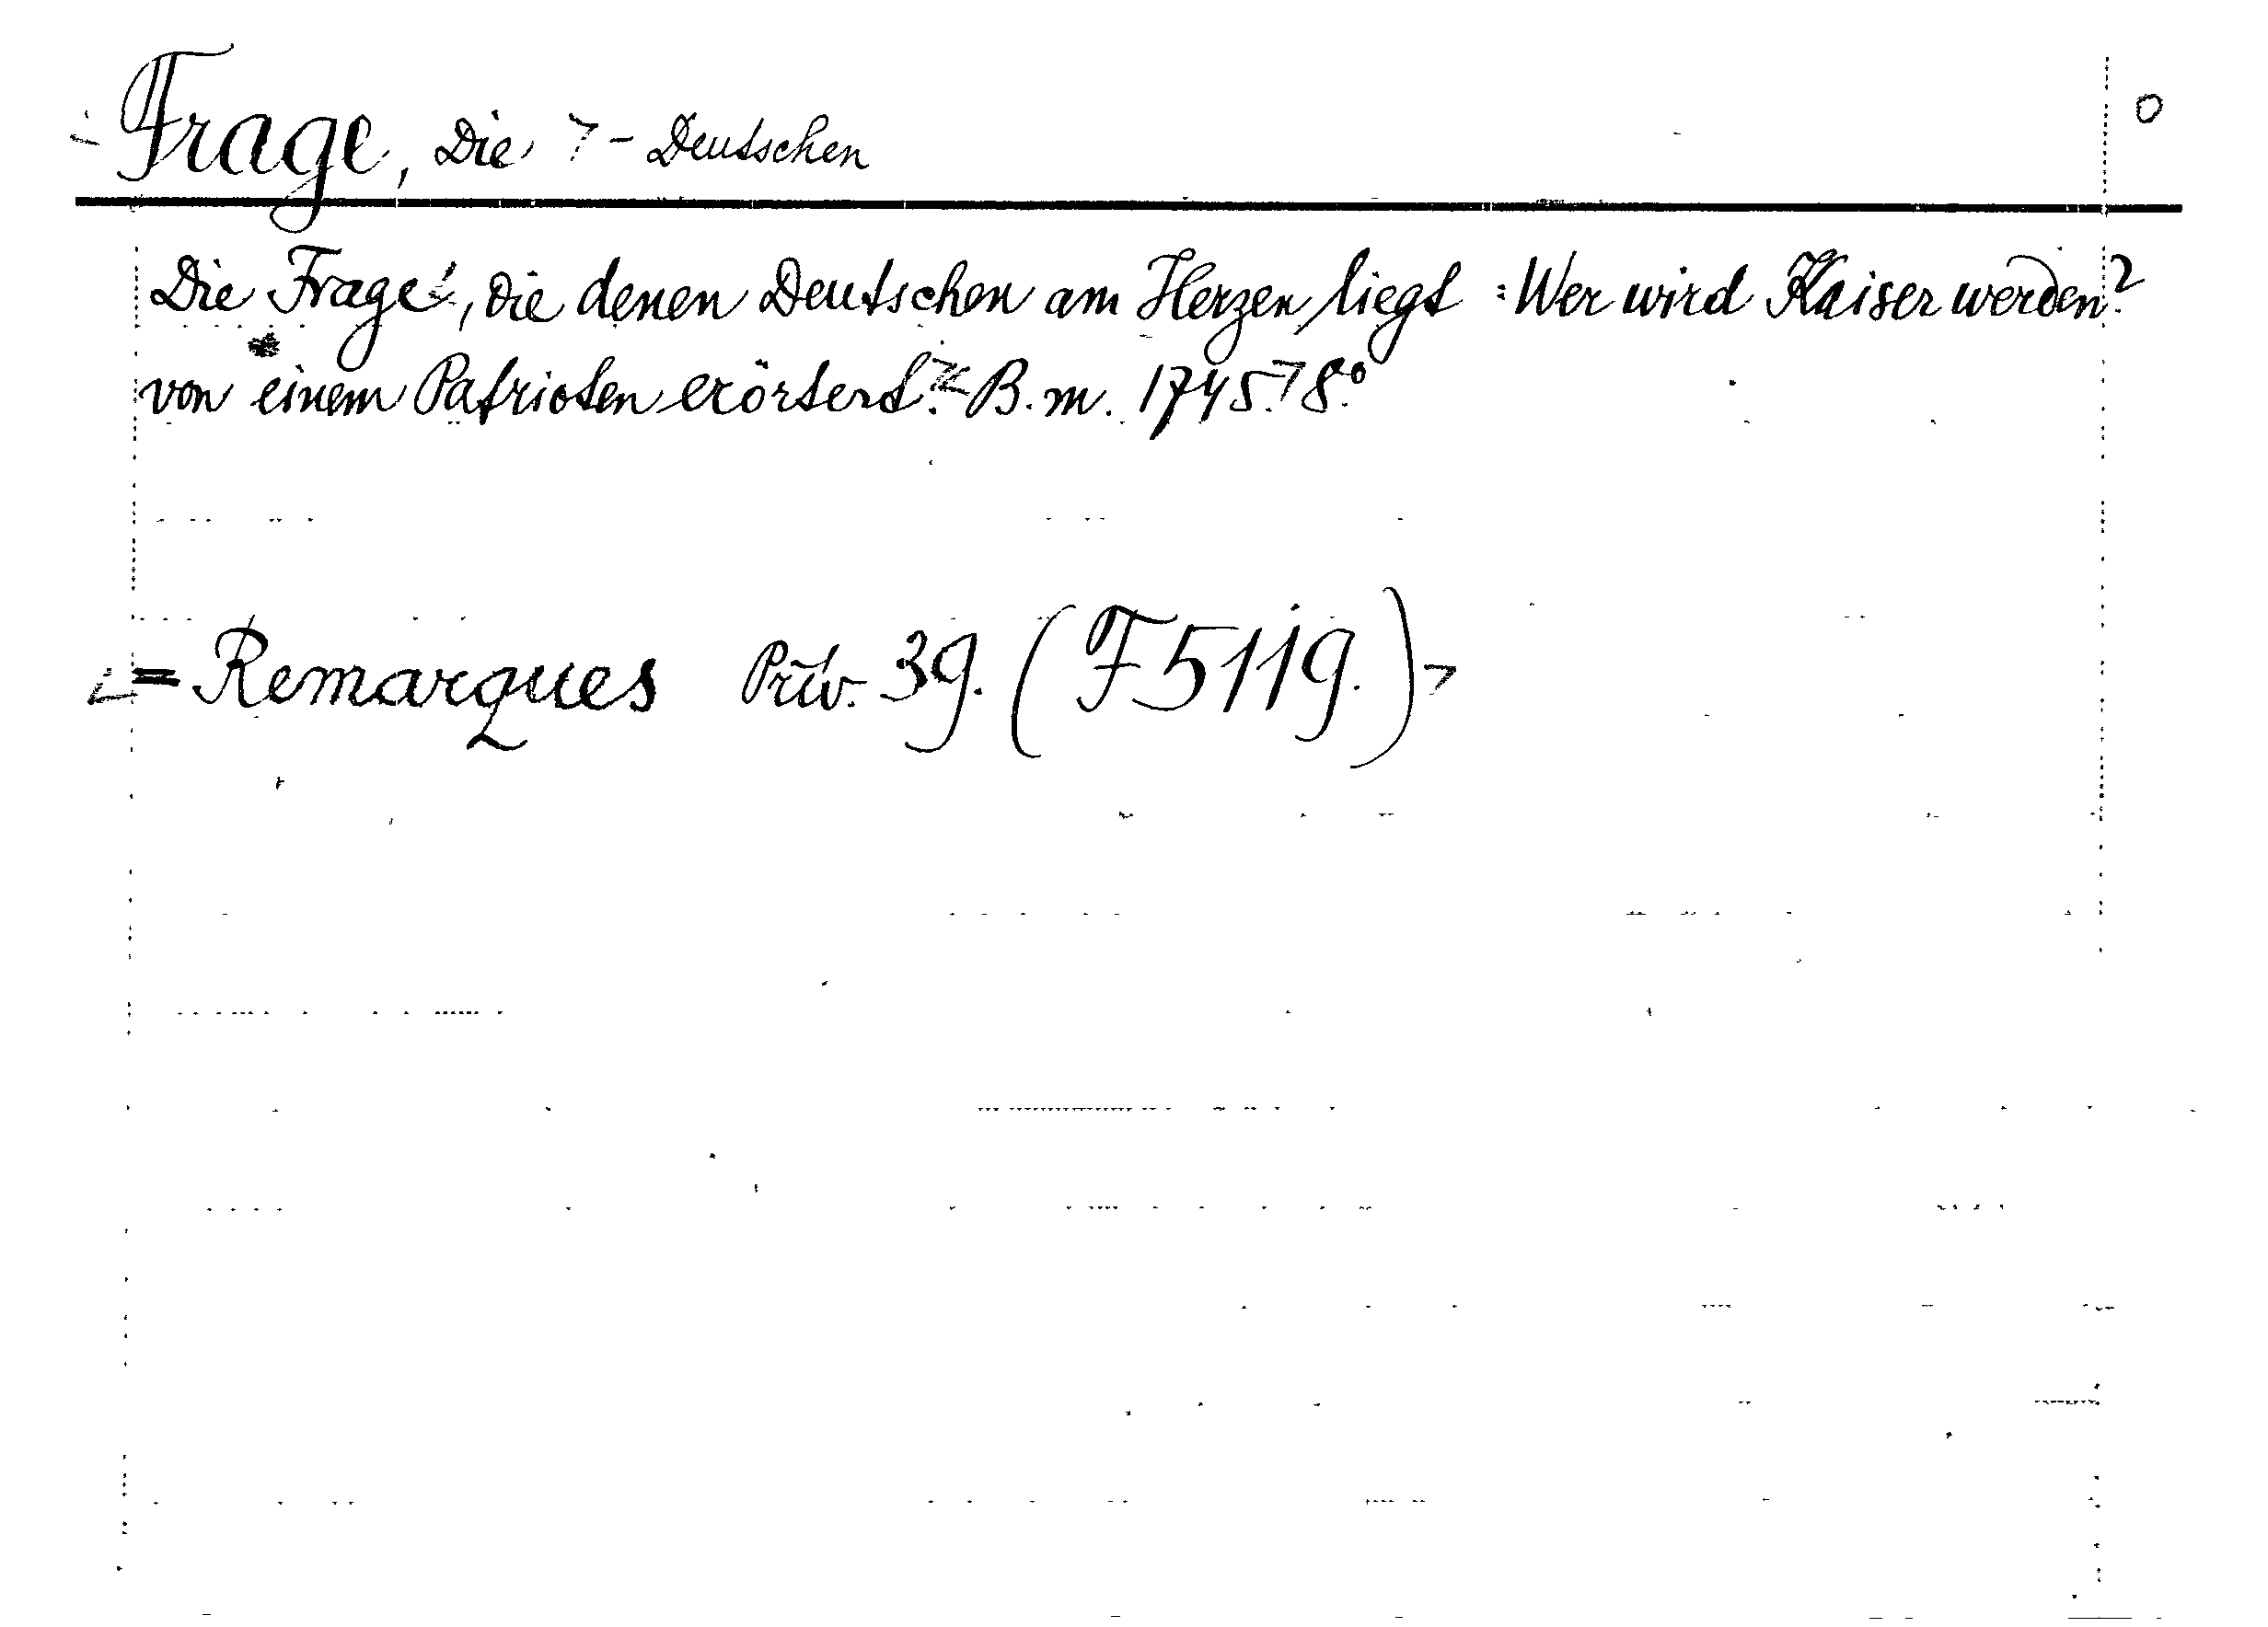 Frage, Die > - Deutschen O
Die Frage, die denen Deutschen am Herzen liegt : Wer wird Kaiser werden?
von einem Patrioten erörtert. B. m. 1745. 8.°
= Remarques Priv. 39. (F5119.)